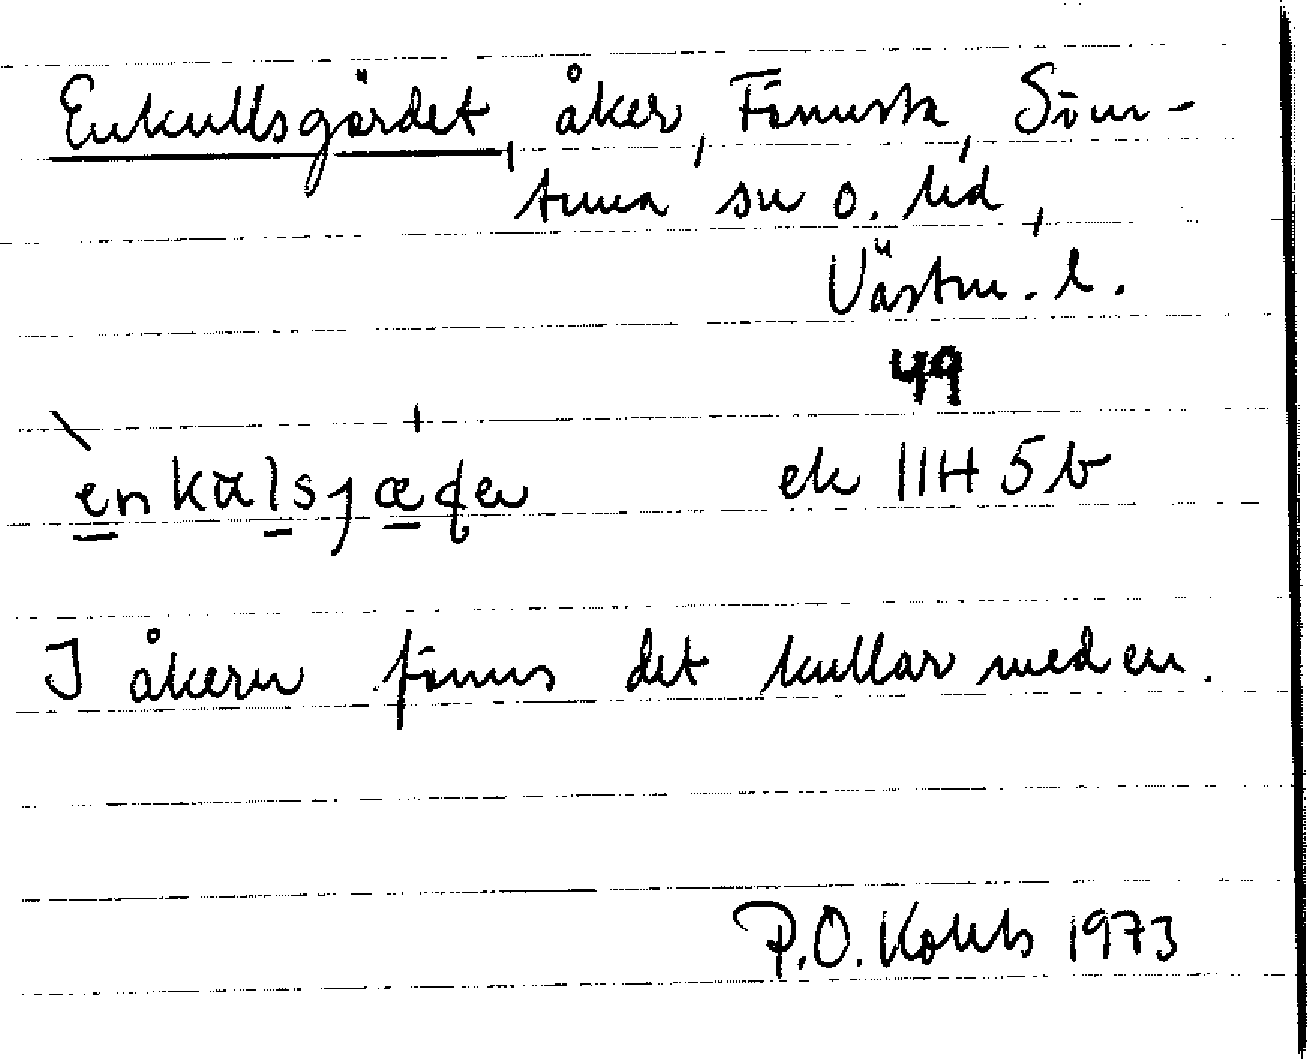 Enkullsgärdet, åker, Finnsta, Sim-
tuna sn o. hd,
Västm. l.
49
enkulsjæɖe ek 11H 5b
I åkern finns det kullar med en.
P.O. 1973